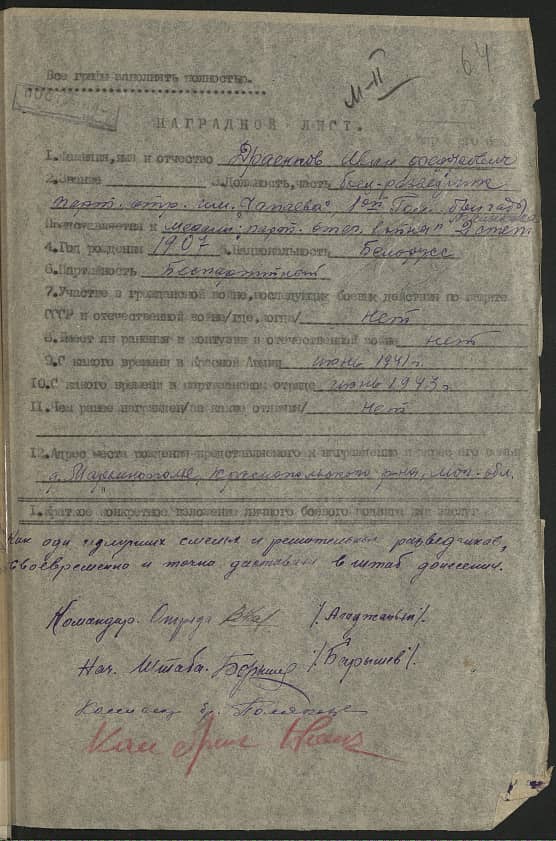 64
Все графы заполнять полностью.
М-II
НАГРАДНОЙ ЛИСТ.
1. Фамилия, имя и отчество Драенков Иван
2. Звание 3. Должность, часть боец-разведчик
парт. отр. им. Чапаева 1ой Гом. бригады
Представляется к медали "парт. отеч. войны" 2 степ.
4. Год рождения 1907 5. Национальность Белорус
6. Партийность Беспартийный
7. Участие в гражданской войне, последующих боевых действиях по защите
СССР и отечественной войне/где, когда/ нет
8. Имеет ли ранения и контузии в отечественной войне нет
9. С какого времени в Красной Армии июнь 1941 г.
10. С какого времени в партизанском отряде июнь 1943 г.
11. Чем ранее награжден/за какие отличия/ нет
12. Адрес места рождения представляемого к награждению и адрес его семьи
д. Краснопольского р-на, Мог. обл.
1. Краткое конкретное изложение личного боевого подвига или заслуг
Как один из лучших смелых и решительных разведчиков,
своевременно и точно доставлял в штаб донесения.
Командир. Отряда /Агаджанян/.
Нач. Штаба. /Барышев/.
Комиссар бр.
Ком бриг